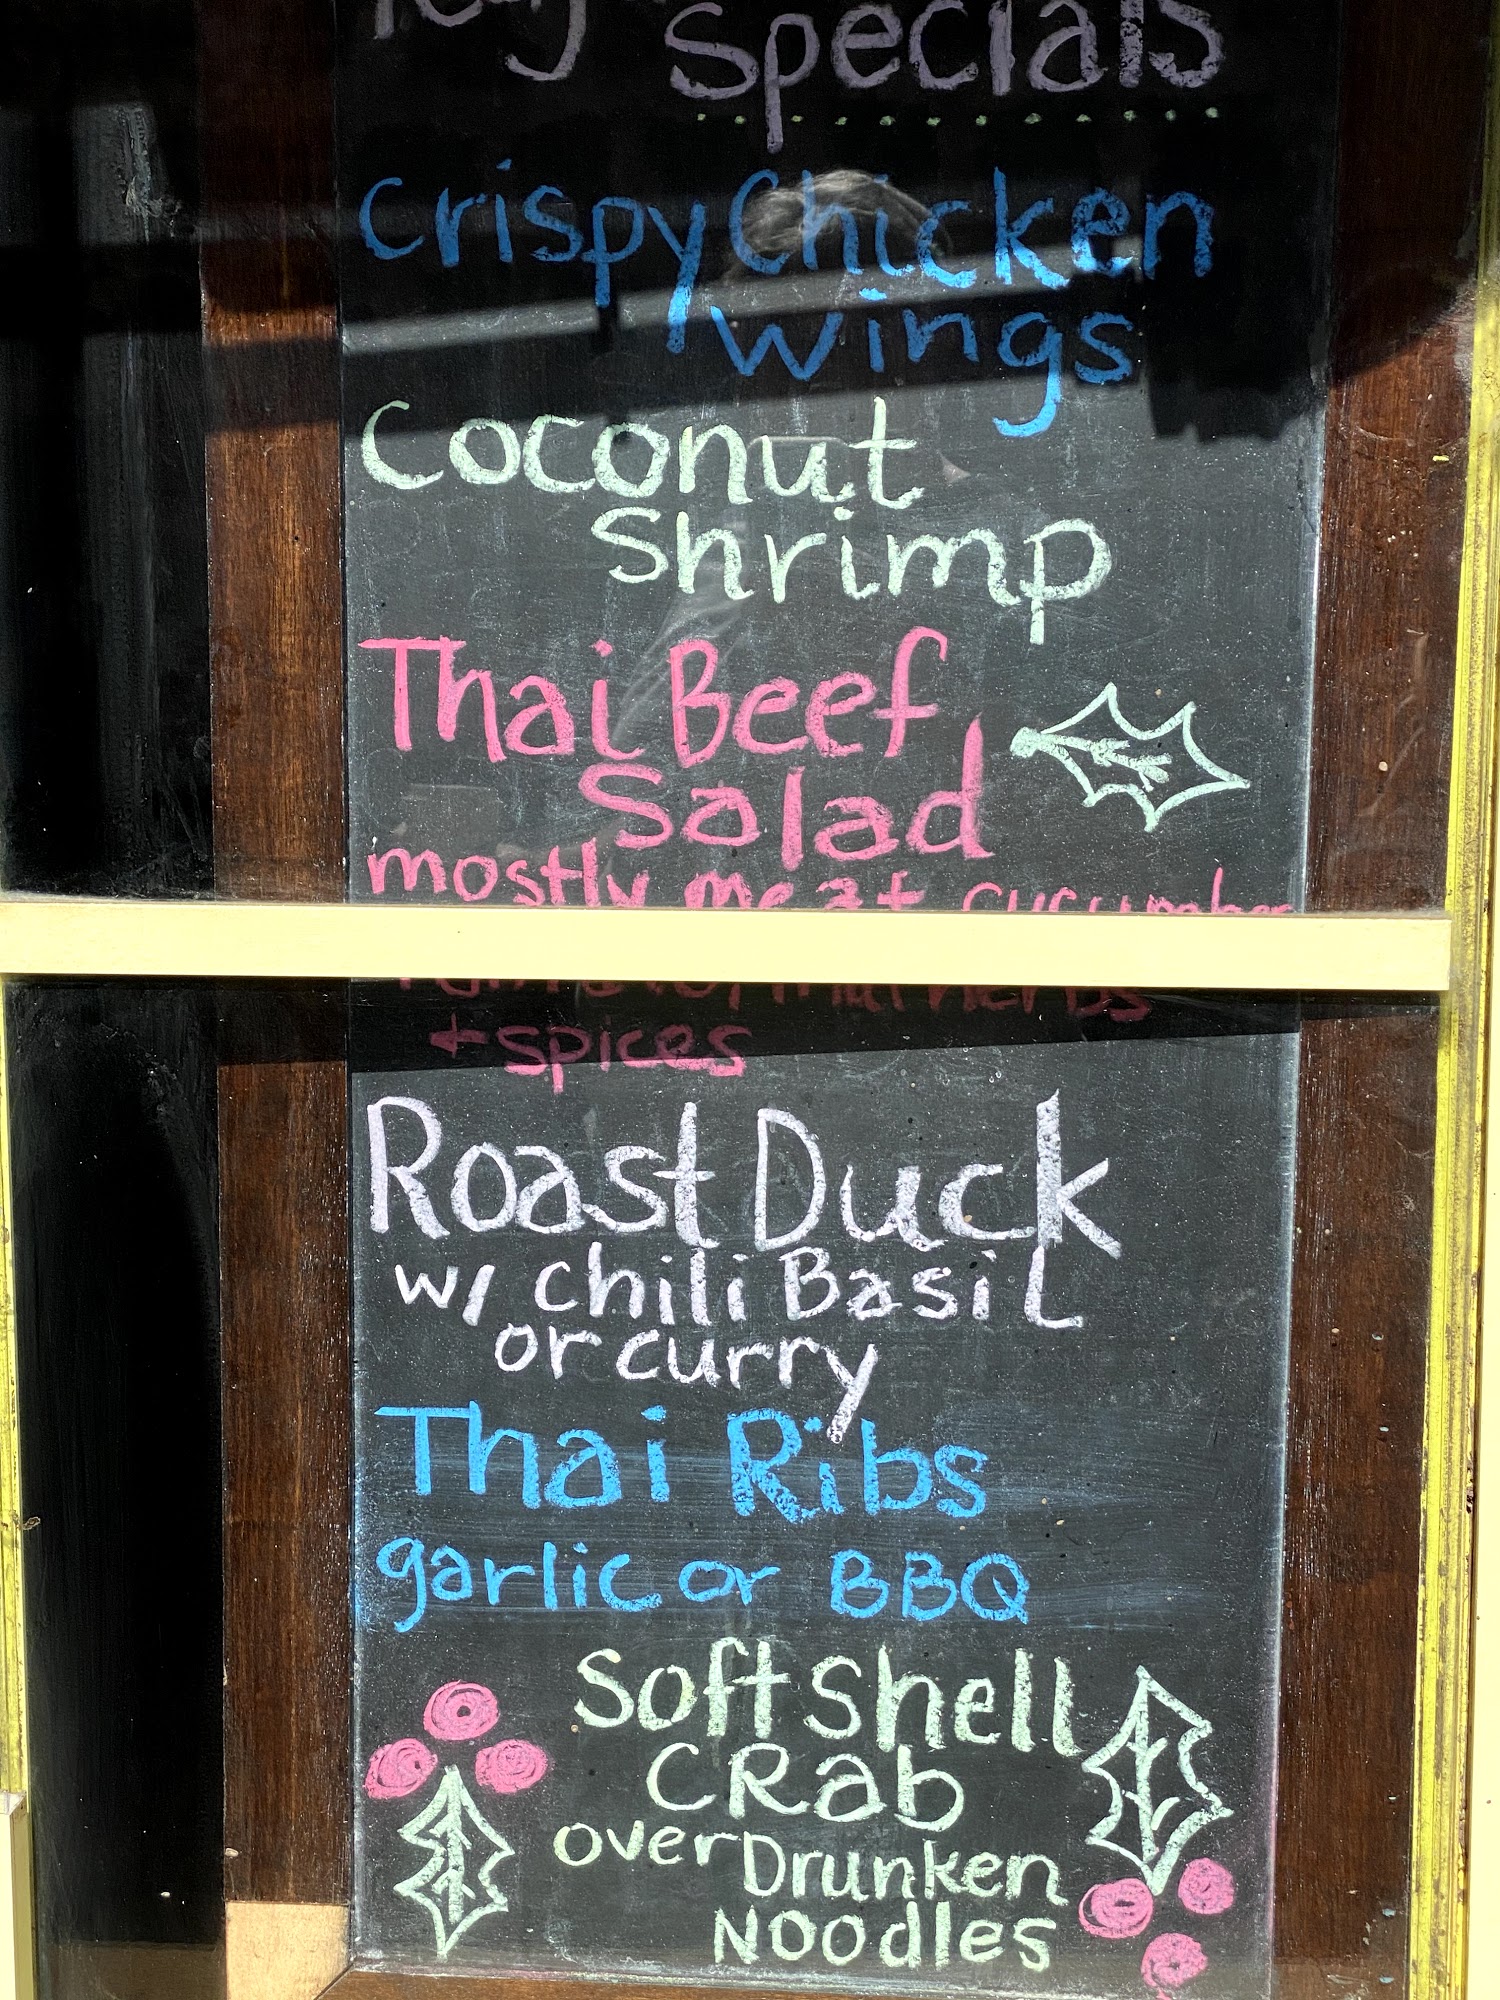 Specials
Crispy Chicken
Wings
Coconut
Shrimp
Thai Beef
Salad
mostly meat cucumber
herbs
+ spices
Roast Duck
w/ chili Basil
or curry
Thai Ribs
garlic or BBQ
Soft Shell
CRab
over Drunken
Noodles